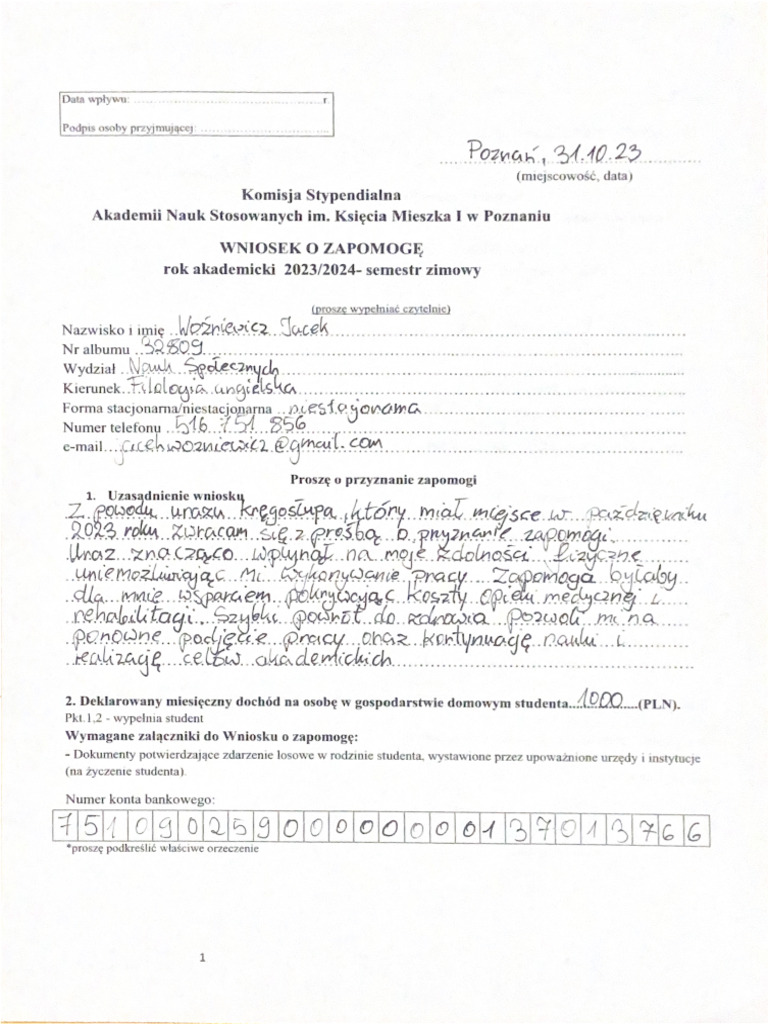 Data wpływu: ............................................................r.
Podpis osoby przyjmującej: ..................................
Poznań, 31.10.23
(miejscowość, data)
Komisja Stypendialna
Akademii Nauk Stosowanych im. Księcia Mieszka I w Poznaniu
WNIOSEK O ZAPOMOGĘ
rok akademicki 2023/2024- semestr zimowy
(proszę wypełniać czytelnie)
Nazwisko i imię Woźniewicz Jacek
Nr albumu 32809
Wydział Nauk Społecznych
Kierunek Filologia angielska
Forma stacjonarna/niestacjonarna niestajonarna
Numer telefonu 516 751 856
e-mail jacekwozniewicz@gmail.com
Proszę o przyznanie zapomogi
1. Uzasadnienie wniosku
Z powodu urazu kręgosłupa, który miał miejsce w październiku
2023 roku zwracam się z prośbą o przyznanie zapomogi.
Uraz znacząco wpłynął na moje zdolności fizyczne
uniemożliwiając mi wykonywanie pracy. Zapomoga byłaby
dla mnie wsparciem pokrywając koszty opieki medycznej i
rehabilitacji. Szybki powrót do zdrowia pozwoli mi na
ponowne podjęcie pracy oraz kontynuację nauki i
realizację celów akademickich
2. Deklarowany miesięczny dochód na osobę w gospodarstwie domowym studenta....1000....(PLN).
Pkt.1,2 - wypełnia student
Wymagane załączniki do Wniosku o zapomogę:
- Dokumenty potwierdzające zdarzenie losowe w rodzinie studenta, wystawione przez upoważnione urzędy i instytucje
(na życzenie studenta).
Numer konta bankowego:
75109025900000000137013766
*proszę podkreślić właściwe orzeczenie
1